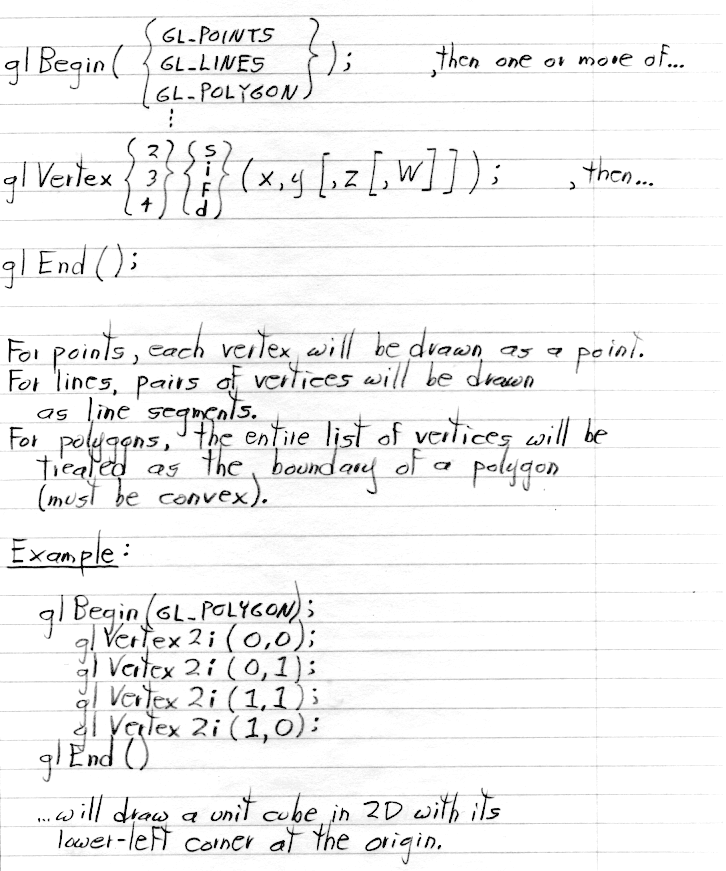 glBegin( { GL_POINTS
GL_LINES
GL_POLYGON } ); , then one or more of...
⋮
glVertex { 2 3 4 } { s i f d } (x, y [, z [, w]]); , then...
glEnd();
For points, each vertex will be drawn as a point.
For lines, pairs of vertices will be drawn
as line segments.
For polygons, the entire list of vertices will be
treated as the boundary of a polygon
(must be convex).
Example:
glBegin(GL_POLYGON);
glVertex2i(0,0);
glVertex2i(0,1);
glVertex2i(1,1);
glVertex2i(1,0);
glEnd()
...will draw a unit cube in 2D with its
lower-left corner at the origin.